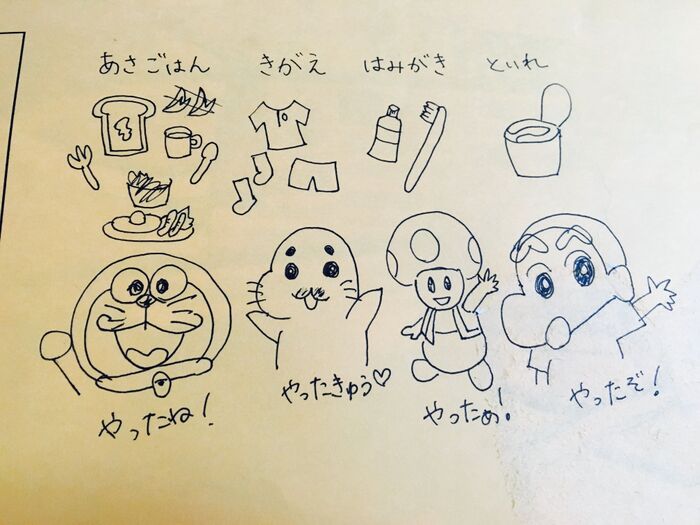 あさごはん
きがえ
はみがき
といれ
やったね!
やったきゅう♡
やったぁ!
やったぞ!